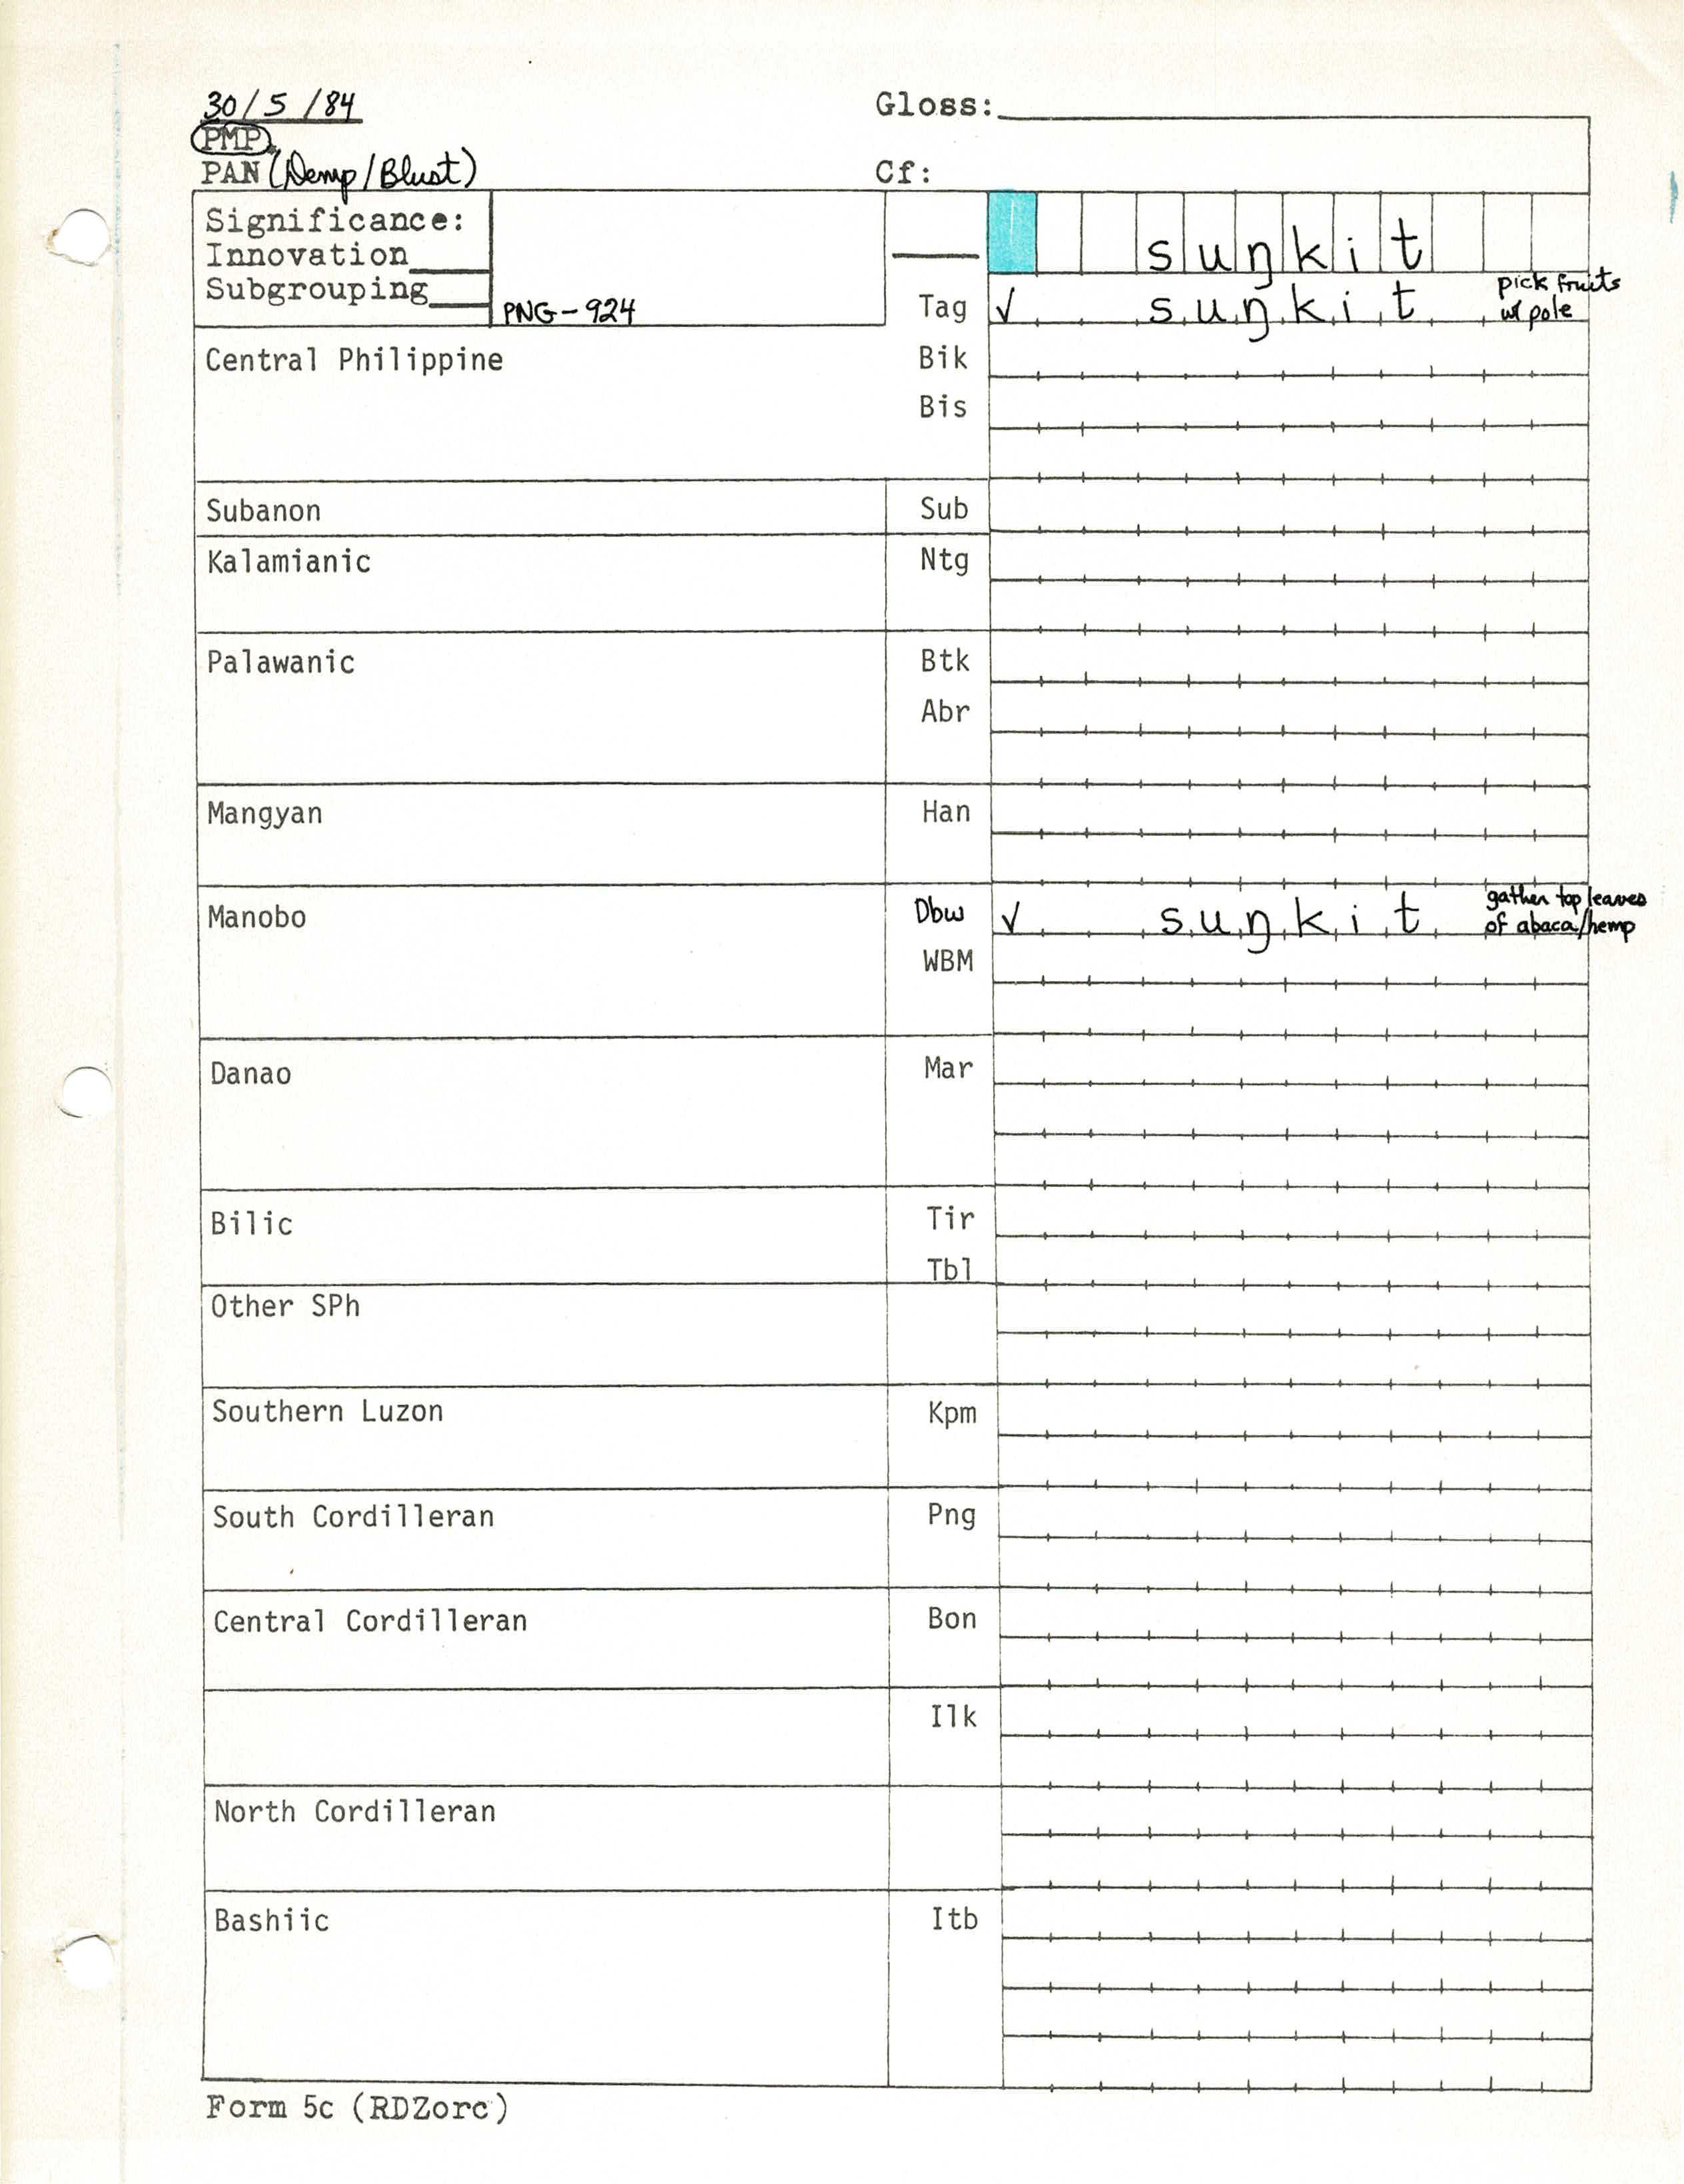 30/5/84
PMP
PAN (Demp/Blust)
Gloss:
Cf:
Significance:
Innovation
Subgrouping
PNG-924
suŋkit
Tag √ suŋkit pick fruits
w/ pole
Central Philippine Bik
Bis
Subanon Sub
Kalamianic Ntg
Palawanic Btk
Abr
Mangyan Han
Manobo Dbw √ suŋkit gather top leaves
of abaca/hemp
WBM
Danao Mar
Bilic Tir
Tbl
Other SPh
Southern Luzon Kpm
South Cordilleran Png
Central Cordilleran Bon
Ilk
North Cordilleran
Bashiic Itb
Form 5c (RDZorc)